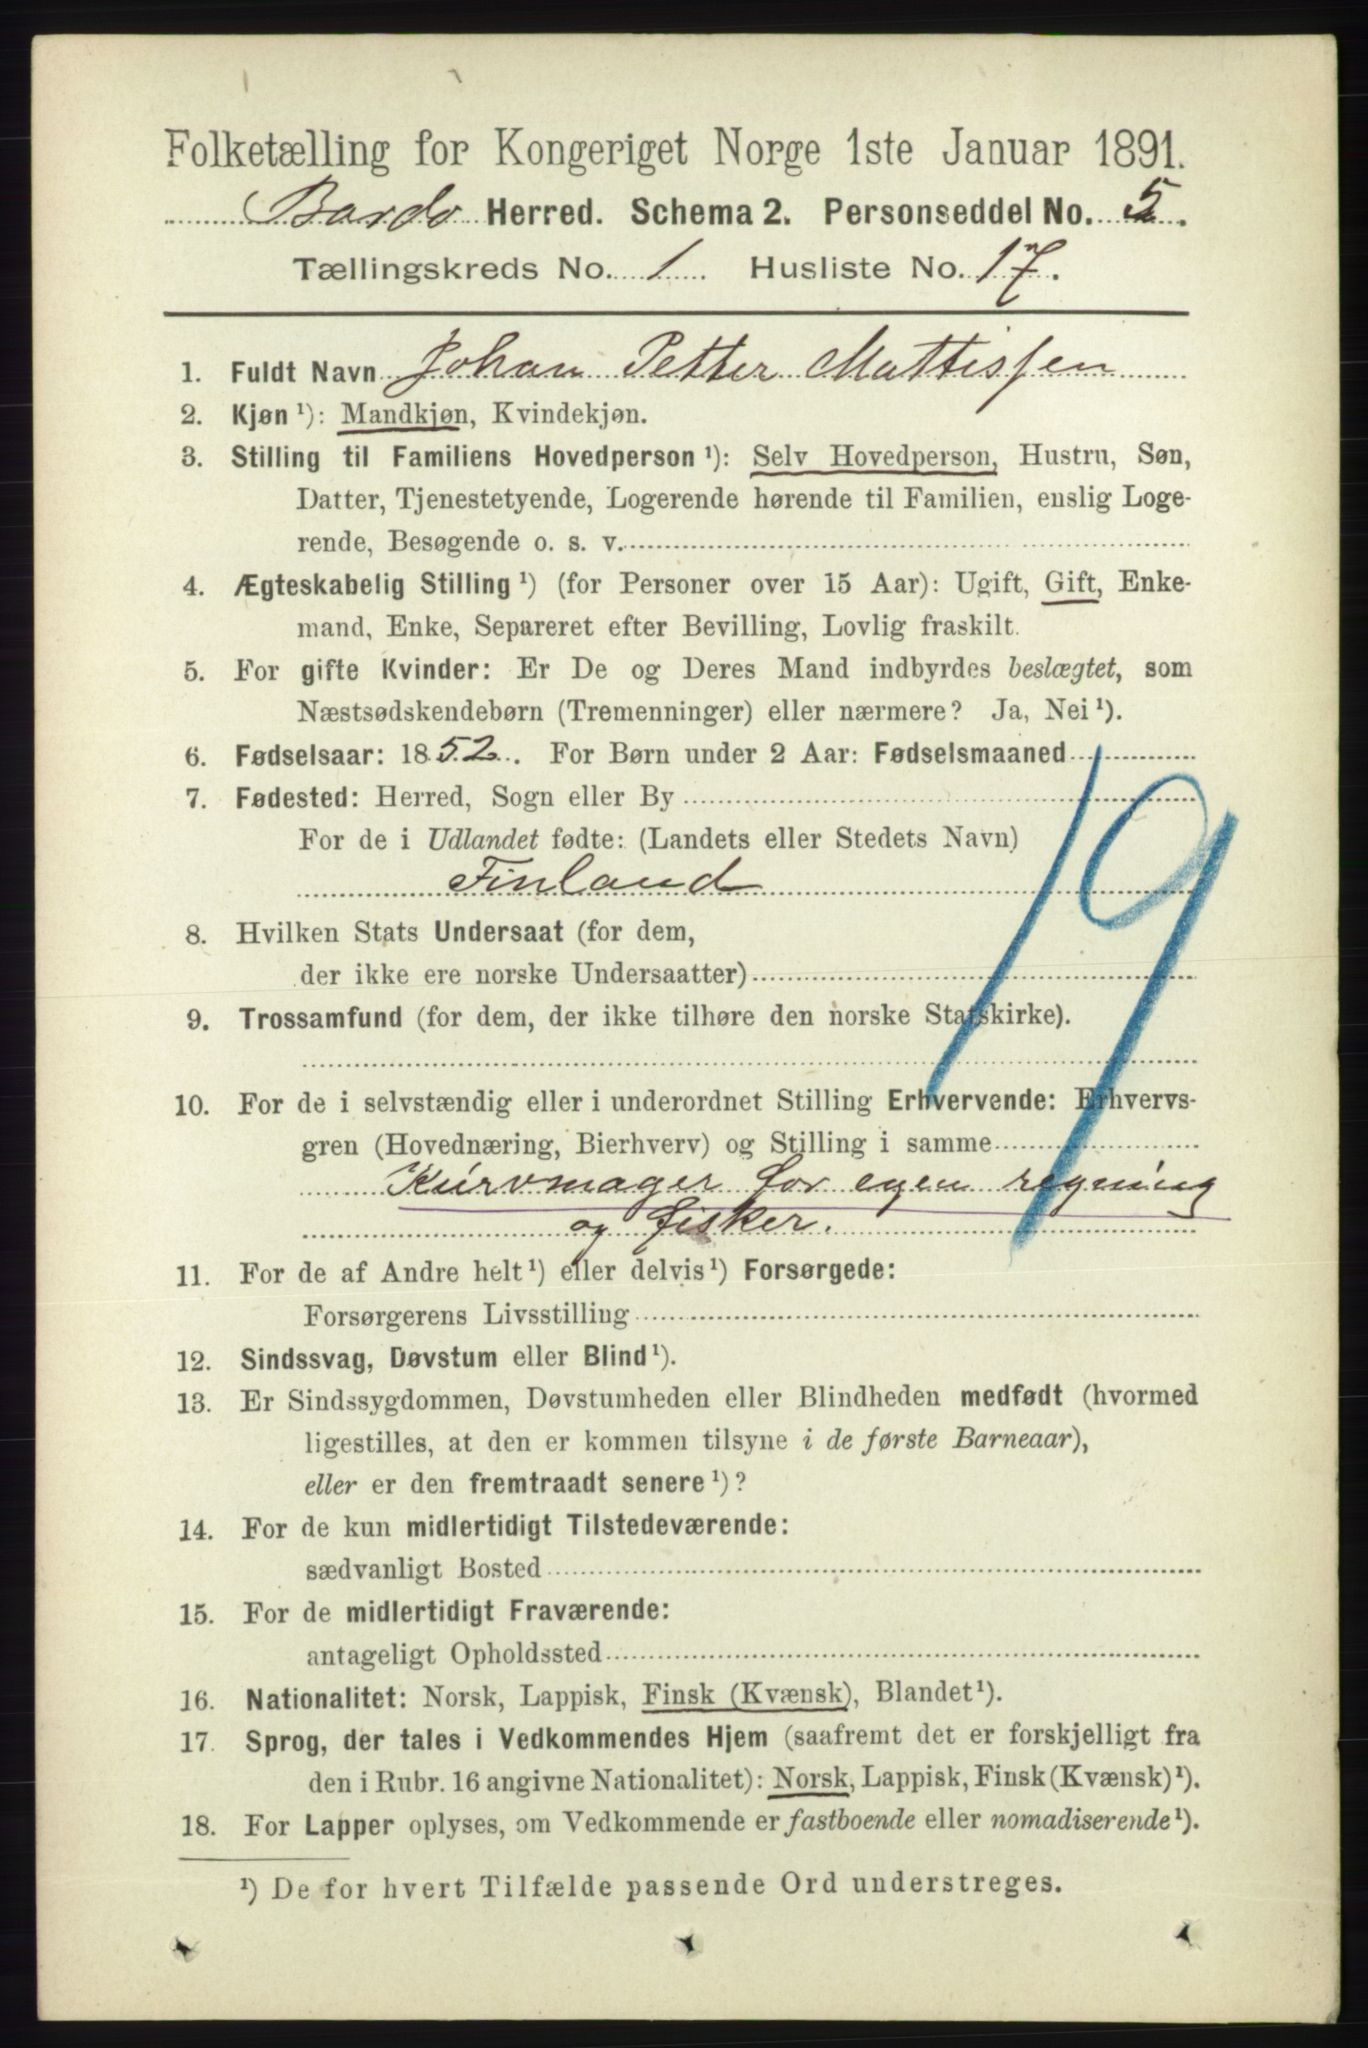 Folketælling for Kongeriget Norge 1ste Januar 1891.
Bardo Herred. Schema 2. Personseddel No. 5.
Tællingskreds No. 1 Husliste No. 17.
1. Fuldt Navn Johan Petter Mattissen
2. Kjøn¹): Mandkjøn, Kvindekjøn.
3. Stilling til Familiens Hovedperson¹): Selv Hovedperson, Hustru, Søn,
Datter, Tjenestetyende, Logerende hørende til Familien, enslig Loge-
rende, Besøgende o. s. v.
4. Ægteskabelig Stilling¹) (for Personer over 15 Aar): Ugift, Gift, Enke-
mand, Enke, Separeret efter Bevilling, Lovlig fraskilt.
5. For gifte Kvinder: Er De og Deres Mand indbyrdes beslægtet, som
Næstsødskendebørn (Tremenninger) eller nærmere? Ja, Nei¹).
6. Fødselsaar: 1852. For Børn under 2 Aar: Fødselsmaaned
7. Fødested: Herred, Sogn eller By
For de i Udlandet fødte: (Landets eller Stedets Navn)
Finland
19
8. Hvilken Stats Undersaat (for dem,
der ikke ere norske Undersaatter)
9. Trossamfund (for dem, der ikke tilhøre den norske Statskirke).
10. For de i selvstændig eller i underordnet Stilling Erhvervende: Erhvervs-
gren (Hovednæring, Bierhverv) og Stilling i samme
Kurvmager for egen regning
og fisker.
11. For de af Andre helt¹) eller delvis¹) Forsørgede:
Forsørgerens Livsstilling
12. Sindssvag, Døvstum eller Blind¹).
13. Er Sindssygdommen, Døvstumheden eller Blindheden medfødt (hvormed
ligestilles, at den er kommen tilsyne i de første Barneaar),
eller er den fremtraadt senere¹)?
14. For de kun midlertidigt Tilstedeværende:
sædvanligt Bosted
15. For de midlertidigt Fraværende:
antageligt Opholdssted
16. Nationalitet: Norsk, Lappisk, Finsk (Kvænsk), Blandet¹).
17. Sprog, der tales i Vedkommendes Hjem (saafremt det er forskjelligt fra
den i Rubr. 16 angivne Nationalitet): Norsk, Lappisk, Finsk (Kvænsk)¹).
18. For Lapper oplyses, om Vedkommende er fastboende eller nomadiserende¹).
¹) De for hvert Tilfælde passende Ord understreges.